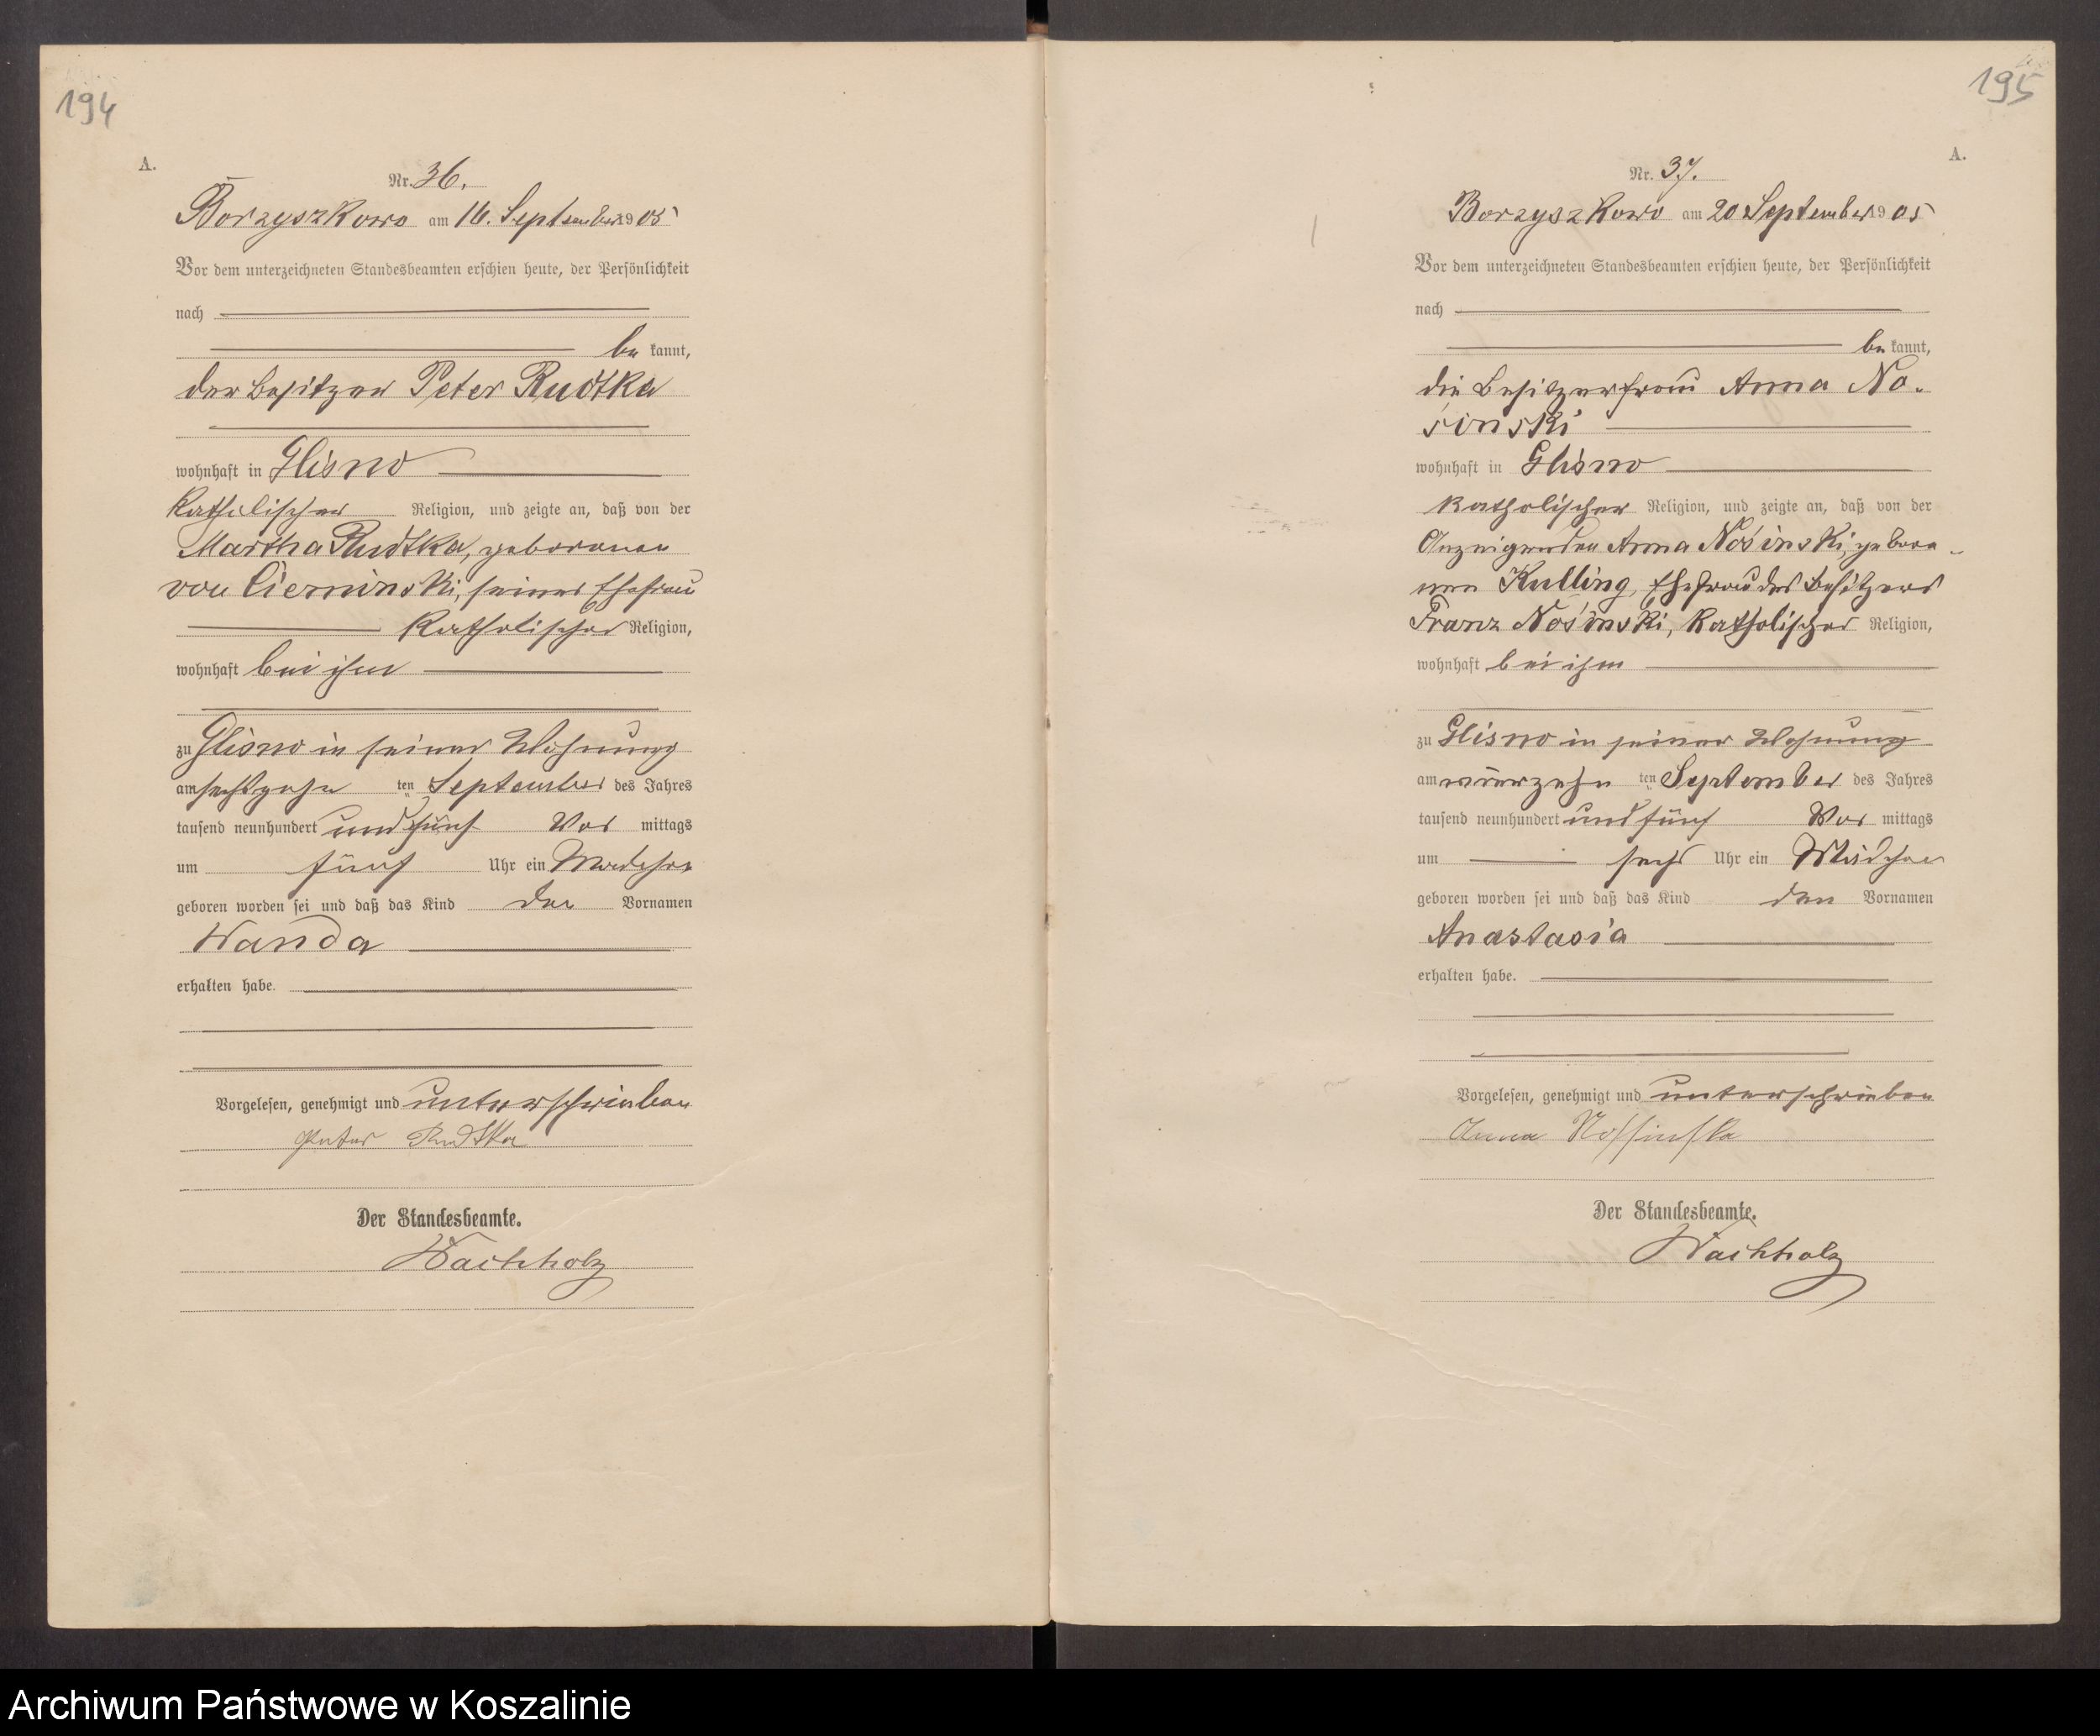 194
A.
Nr. 36.
Borzyszkowo am 16. September 1905
Vor dem unterzeichneten Standesbeamten erschien heute, der Persönlichkeit
nach
be kannt,
der Besitzer Peter Rudtka
wohnhaft in Glisno
katholischer Religion, und zeigte an, daß von der
Martha Rudtka, geborenen
von Cierninski, seiner Ehefrau
katholischer Religion,
wohnhaft bei ihm
zu Glisno in seiner Wohnung
am sechszehn ten September des Jahres
tausend neunhundert und fünf Vor mittags
um fünf Uhr ein Mädchen
geboren worden sei und daß das Kind den Vornamen
Wanda
erhalten habe.
Vorgelesen, genehmigt und unterschrieben
Peter Rudtka
Der Standesbeamte.
Wachholz
195
A.
Nr. 37.
Borzyszkowo am 20 September 1905
Vor dem unterzeichneten Standesbeamten erschien heute, der Persönlichkeit
nach
be kannt,
die Besitzerfrau Anna No-
sinski
wohnhaft in Glisno
katholischer Religion, und zeigte an, daß von der
Anzeigenden Anna Nosinski, gebore-
nen Kulling, Ehefrau des Besitzers
Franz Nosinski, katholischer Religion,
wohnhaft bei ihm
zu Glisno in seiner Wohnung
am vierzehn ten September des Jahres
tausend neunhundert und fünf Vor mittags
um sechs Uhr ein Mädchen
geboren worden sei und daß das Kind den Vornamen
Anastasia
erhalten habe.
Vorgelesen, genehmigt und unterschrieben
Anna Nossinska
Der Standesbeamte.
Wachholz
Archiwum Państwowe w Koszalinie